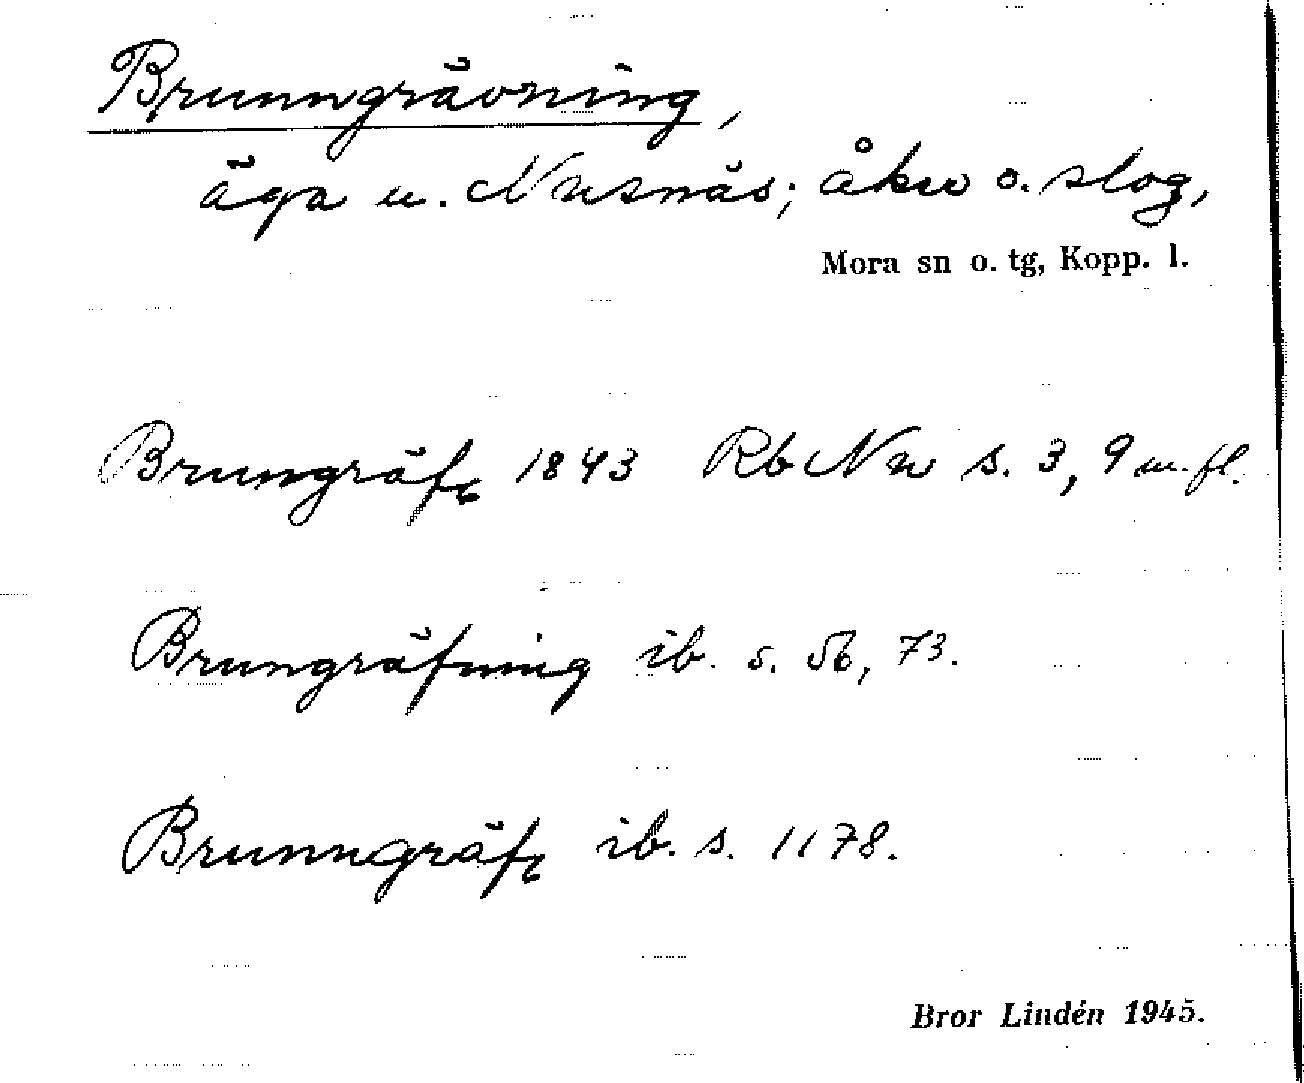 Brunngrävning,
äga u. Nusnäs; åker o. slog,
Mora sn o. tg, Kopp. l.
Brungräfg 1843 Rb Nu s. 3, 9 m. fl.
Brungräfning ib. s. 56, 73.
Brunngräfg ib. s. 1178.
Bror Lindén 1945.